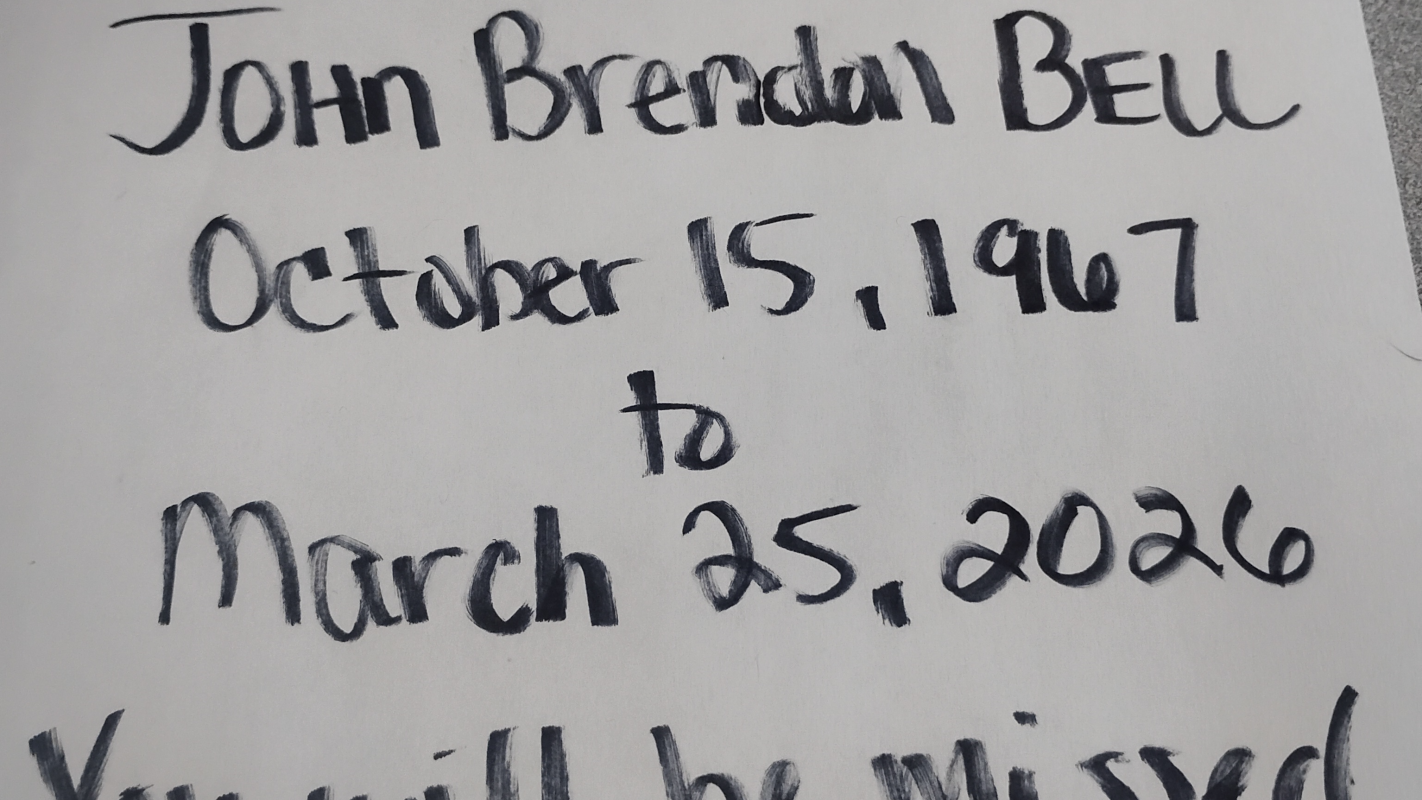 John Brendan BELL
October 15, 1967
to
March 25, 2026
You will be missed